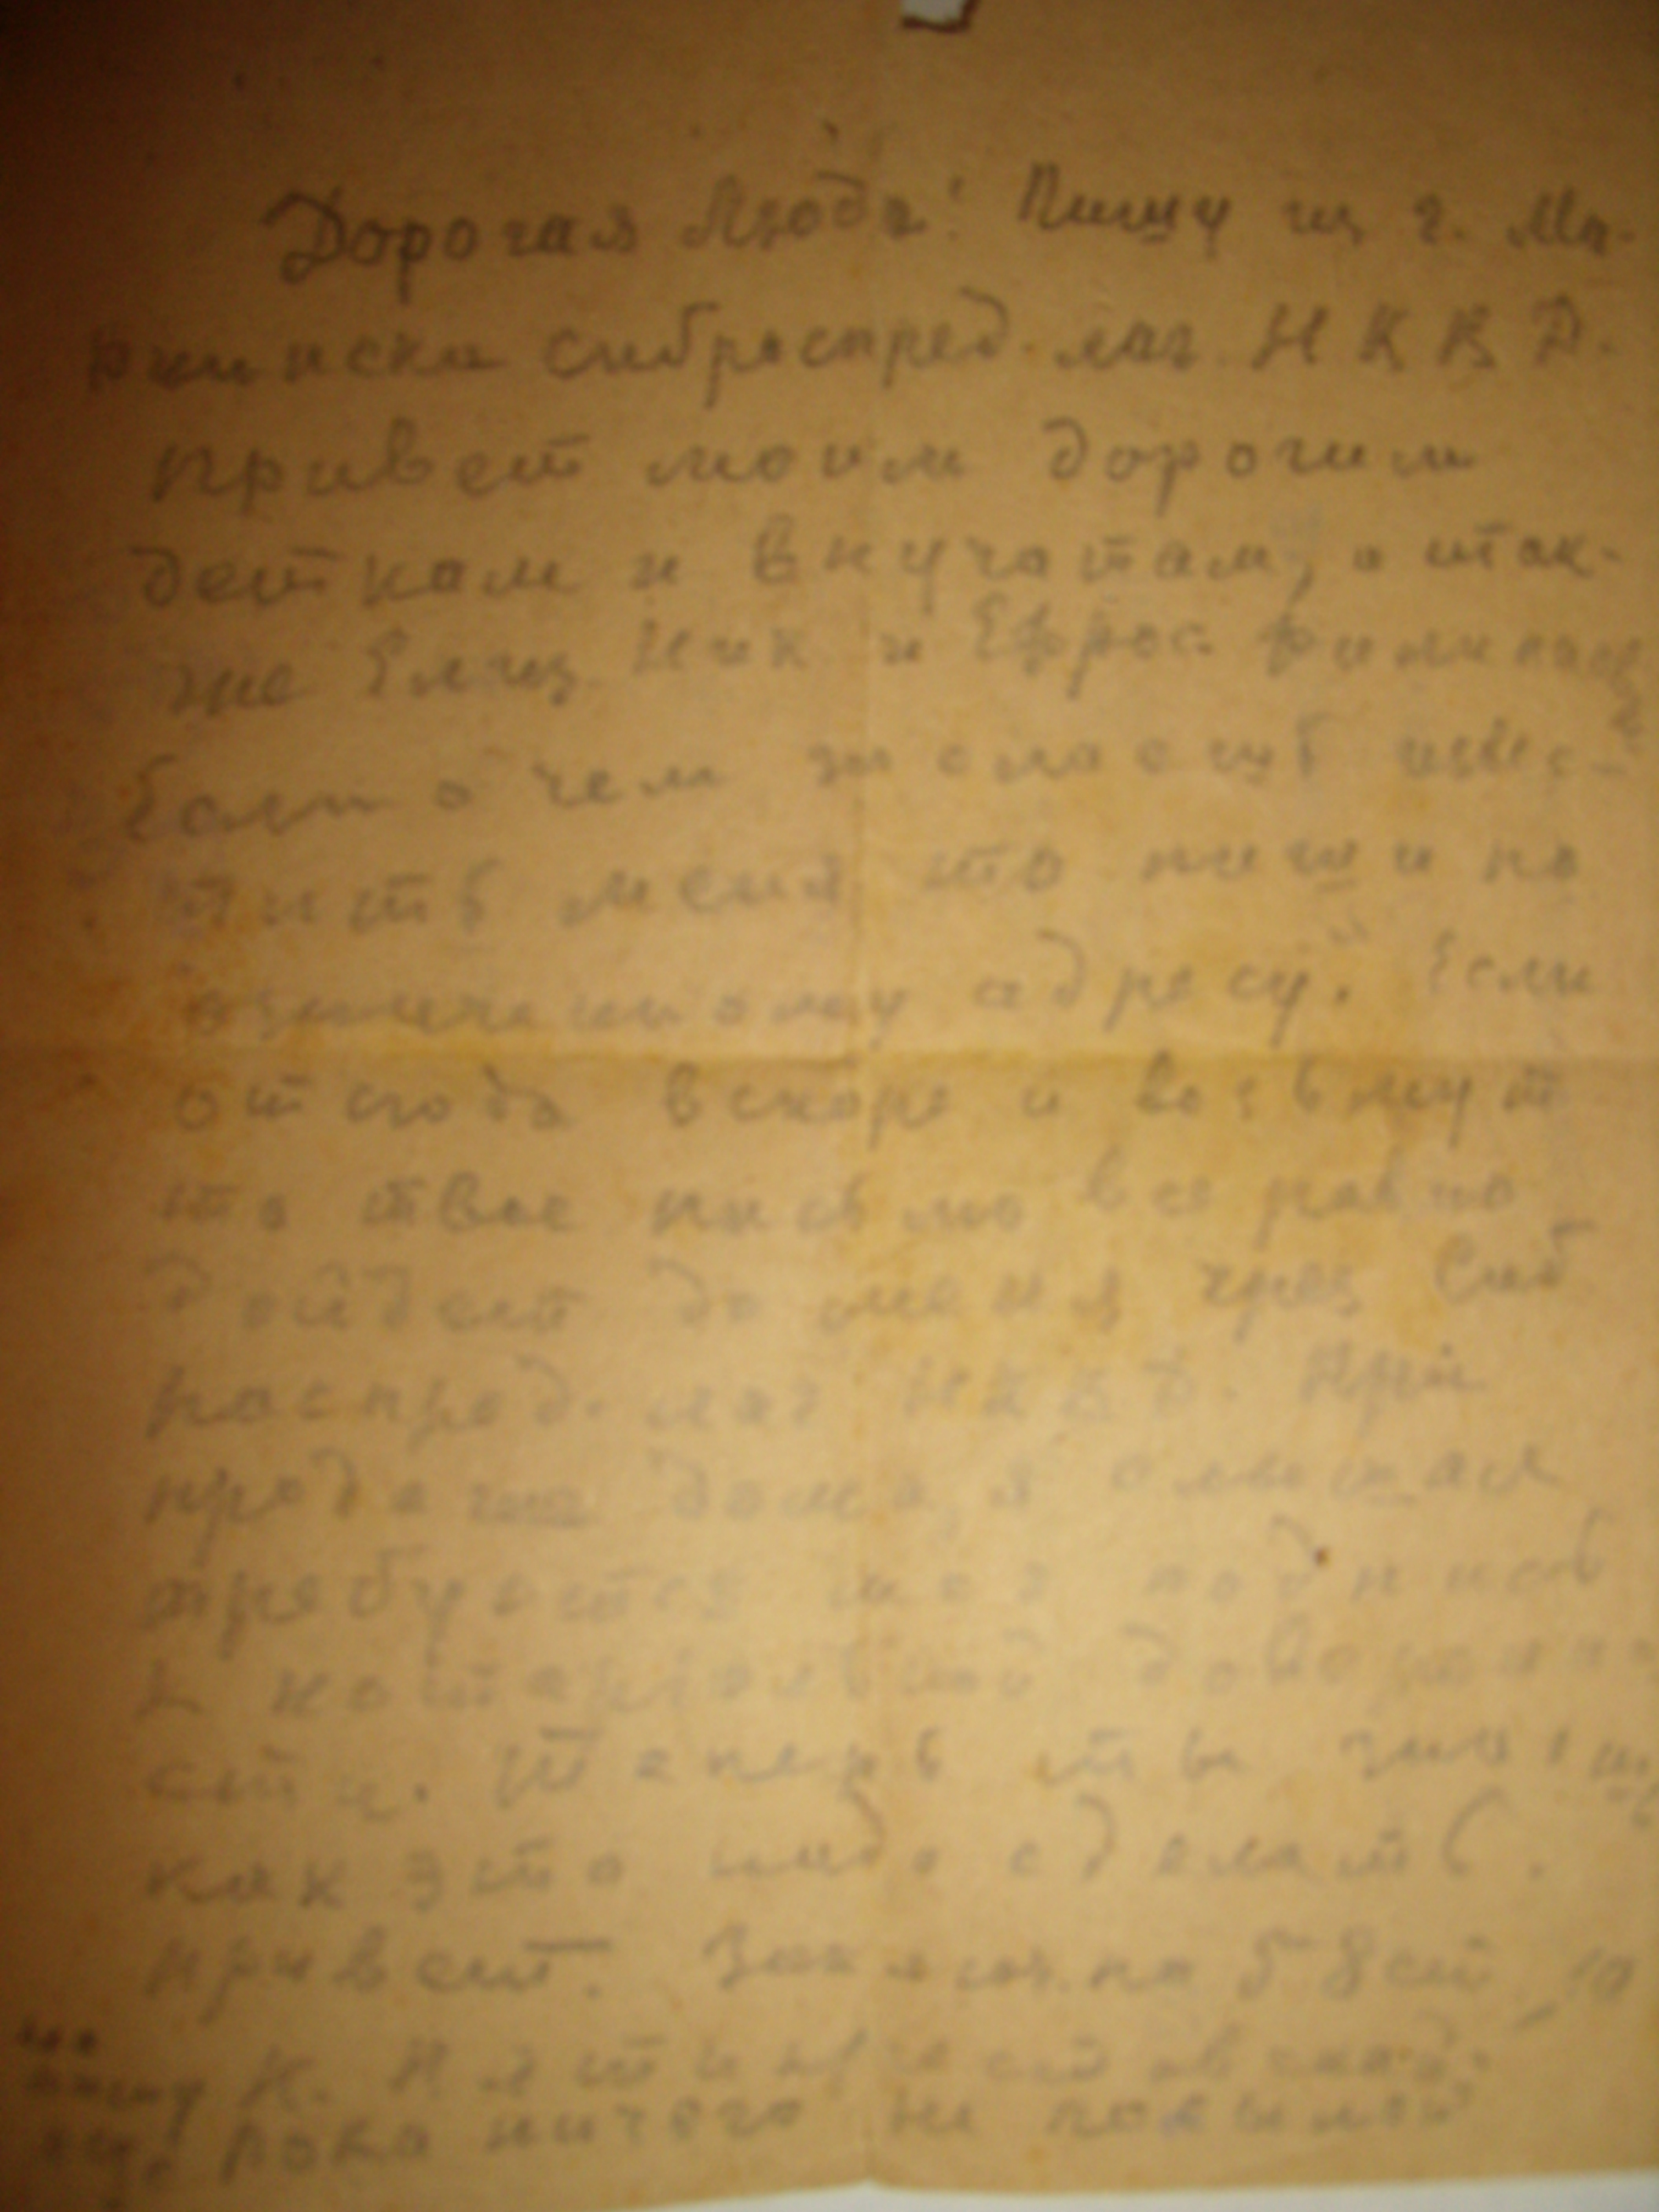 Дорогая Люда! Пишу из г. Ма-
риинска сибраспред. лаг. Н К В Д.
привет моим дорогим
деткам и внучатам, а так-
же Елиз. Ник. и Ефрос. Филип
Если о чем
тить меня то пиши по
адресу. Если
отсюда вскоре и возьмут
то твое письмо все равно
дойдет до меня чрез Сиб
распред. лаг Н К В Д. При
продаже дома, я
требуется моя подпись
к нотариальной доверенно
сти. Теперь ты
как это надо сделать.
привет. по 58 ст. 10
К.
пока ничего не